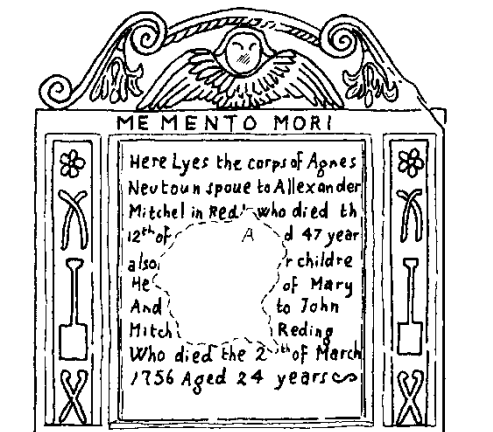 ME MENTO MORI
Here Lyes the corps of Agnes
Neutoun spoue to Allexander
Mitchel in Red who died th
12th of A d 47 year
also r childre
He of Mary
And to John
Mitch Reding
Who died the 2 th of March
1756 Aged 24 years